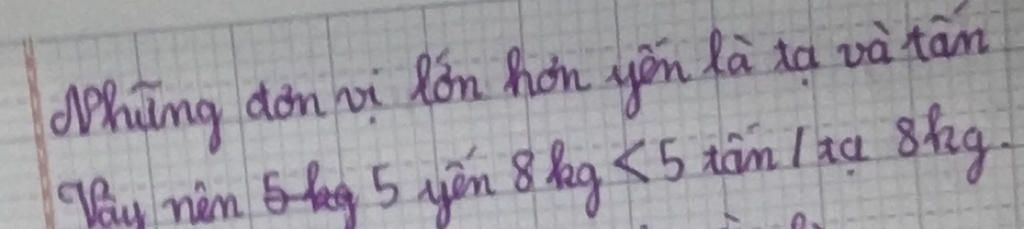 Những đơn vị lớn hơn yến là tạ và tấn
Vậy nên 5 kg 5 yến 8 kg < 5 tấn 1 tạ 8kg.